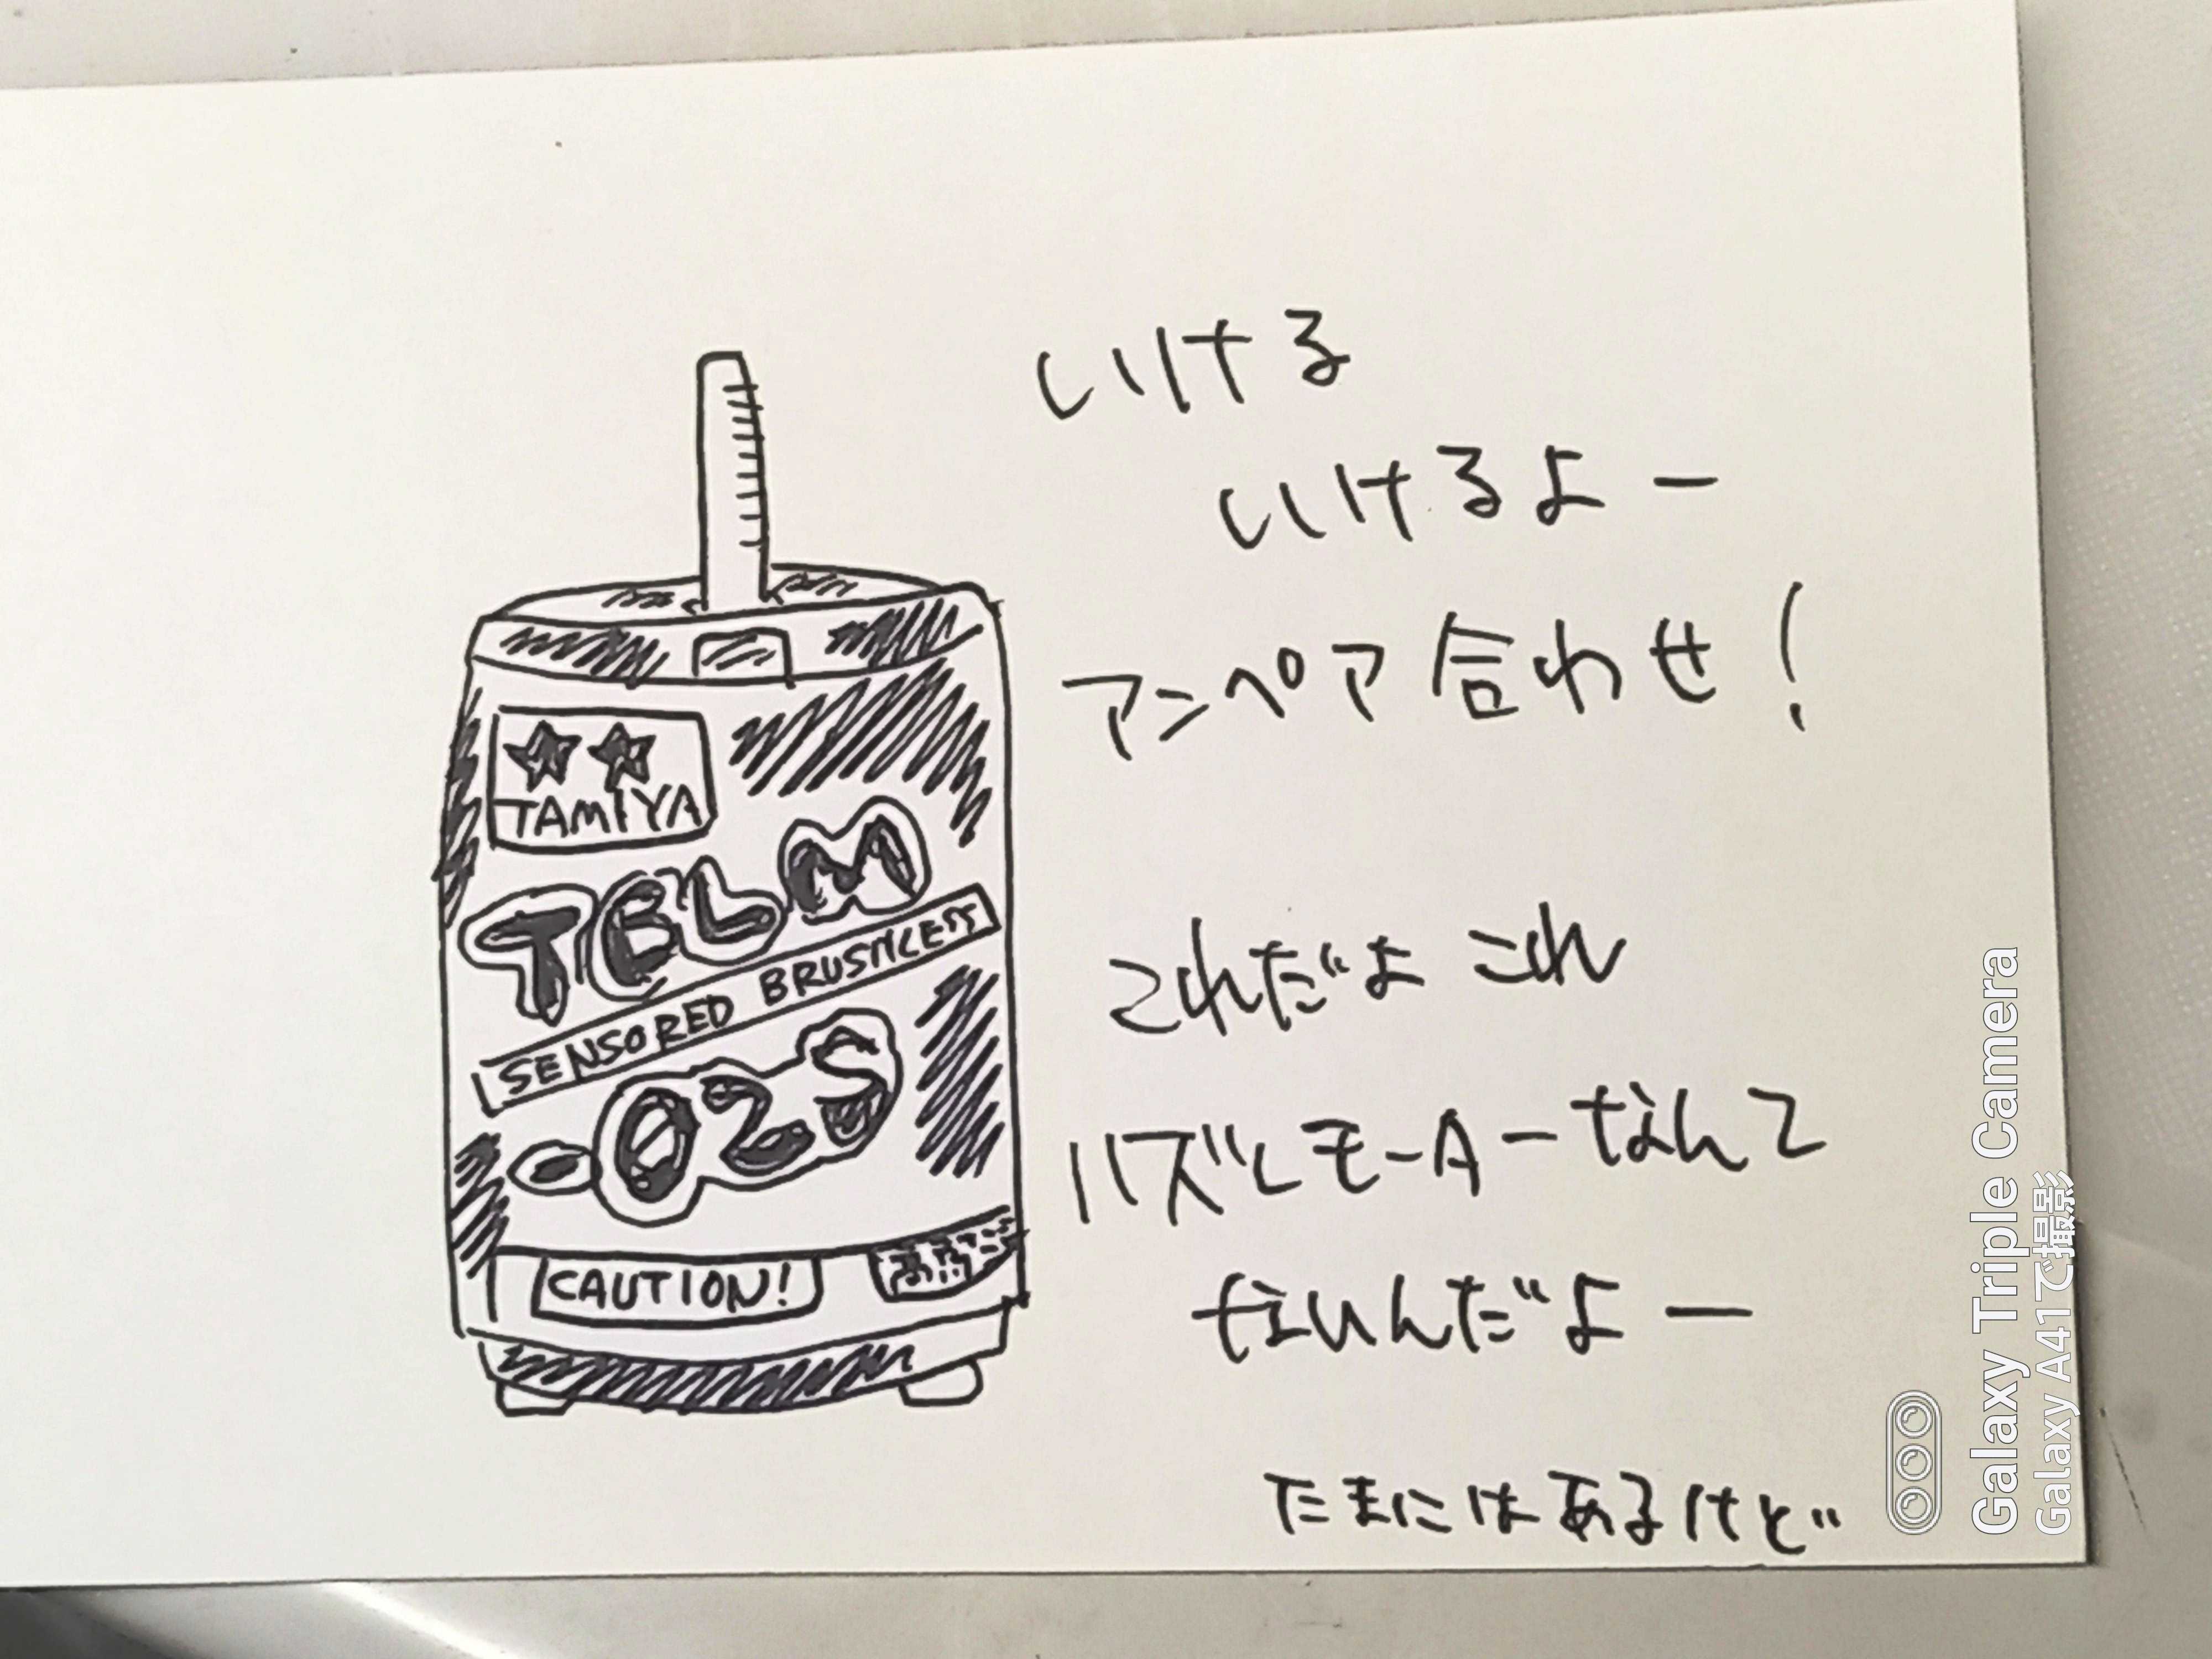 いける
いけるよー
アンペア合わせ!
これだよ これ
ハズレモーターなんて
ないんだよー
たまにはあるけど
TAMIYA
TBLM
SENSORED BRUSHLESS
-02S
CAUTION!
高熱
Galaxy Triple Camera
Galaxy A41で撮影